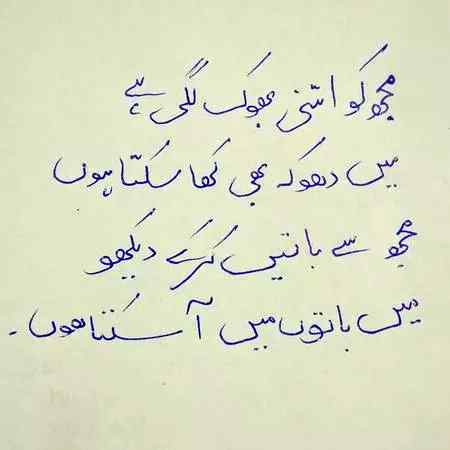 مجھ کو اتنی بھوک لگی ہے
میں دھوکہ بھی کھا سکتا ہوں
مجھ سے باتیں کرکے دیکھو
میں باتوں میں آ سکتا ہوں۔